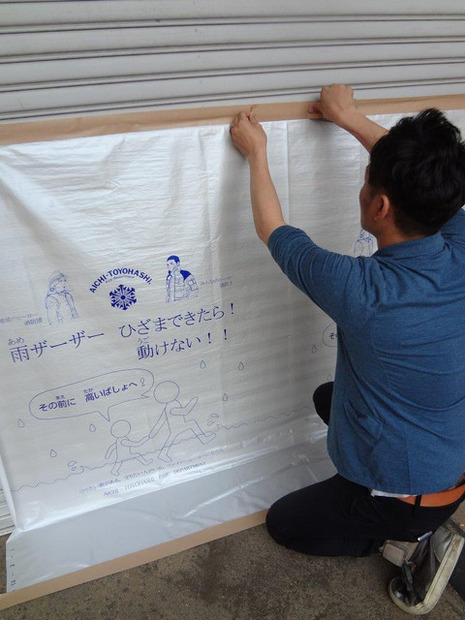 AICHI-TOYOHASHI
消防団
あめ
雨ザーザー ひざまできたら!
うご
動けない!!
まえ たか
その前に 高いばしょへ!
AICHI TOYOHASHI FIRE DEPARTMENT